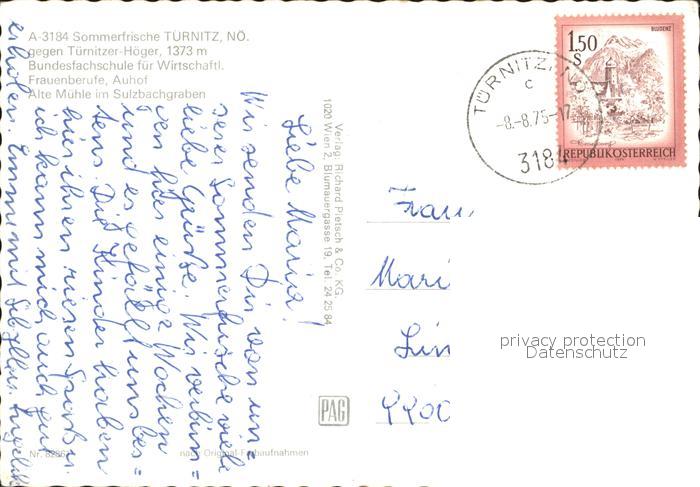 A-3184 Sommerfrische TÜRNITZ, NÖ.
gegen Türnitzer-Höger, 1373 m
Bundesfachschule für Wirtschaftl.
Frauenberufe, Auhof
Alte Mühle im Sulzbachgraben
1.50
S
BLUDENZ
REPUBLIK ÖSTERREICH
TÜRNITZ, NÖ
c
-8.-8.75-17
3184
Liebe Maria!
Wir senden Dir von un=
serer Sommerfrische viele
liebe Grüße. Wir verbrin=
gen hier einige Wochen
und es gefällt uns bes=
tens. Die Kinder haben
hier ihren riesen Spaß u.
ich kann mich auch gut
erholen
Verlag: Richard Pietsch & Co. KG.
1020 Wien 2, Blumauergasse 19, Tel. 24 25 84
Frau
Mari
Lin
privacy protection
Datenschutz
PAG
nach Original-Farbaufnahmen